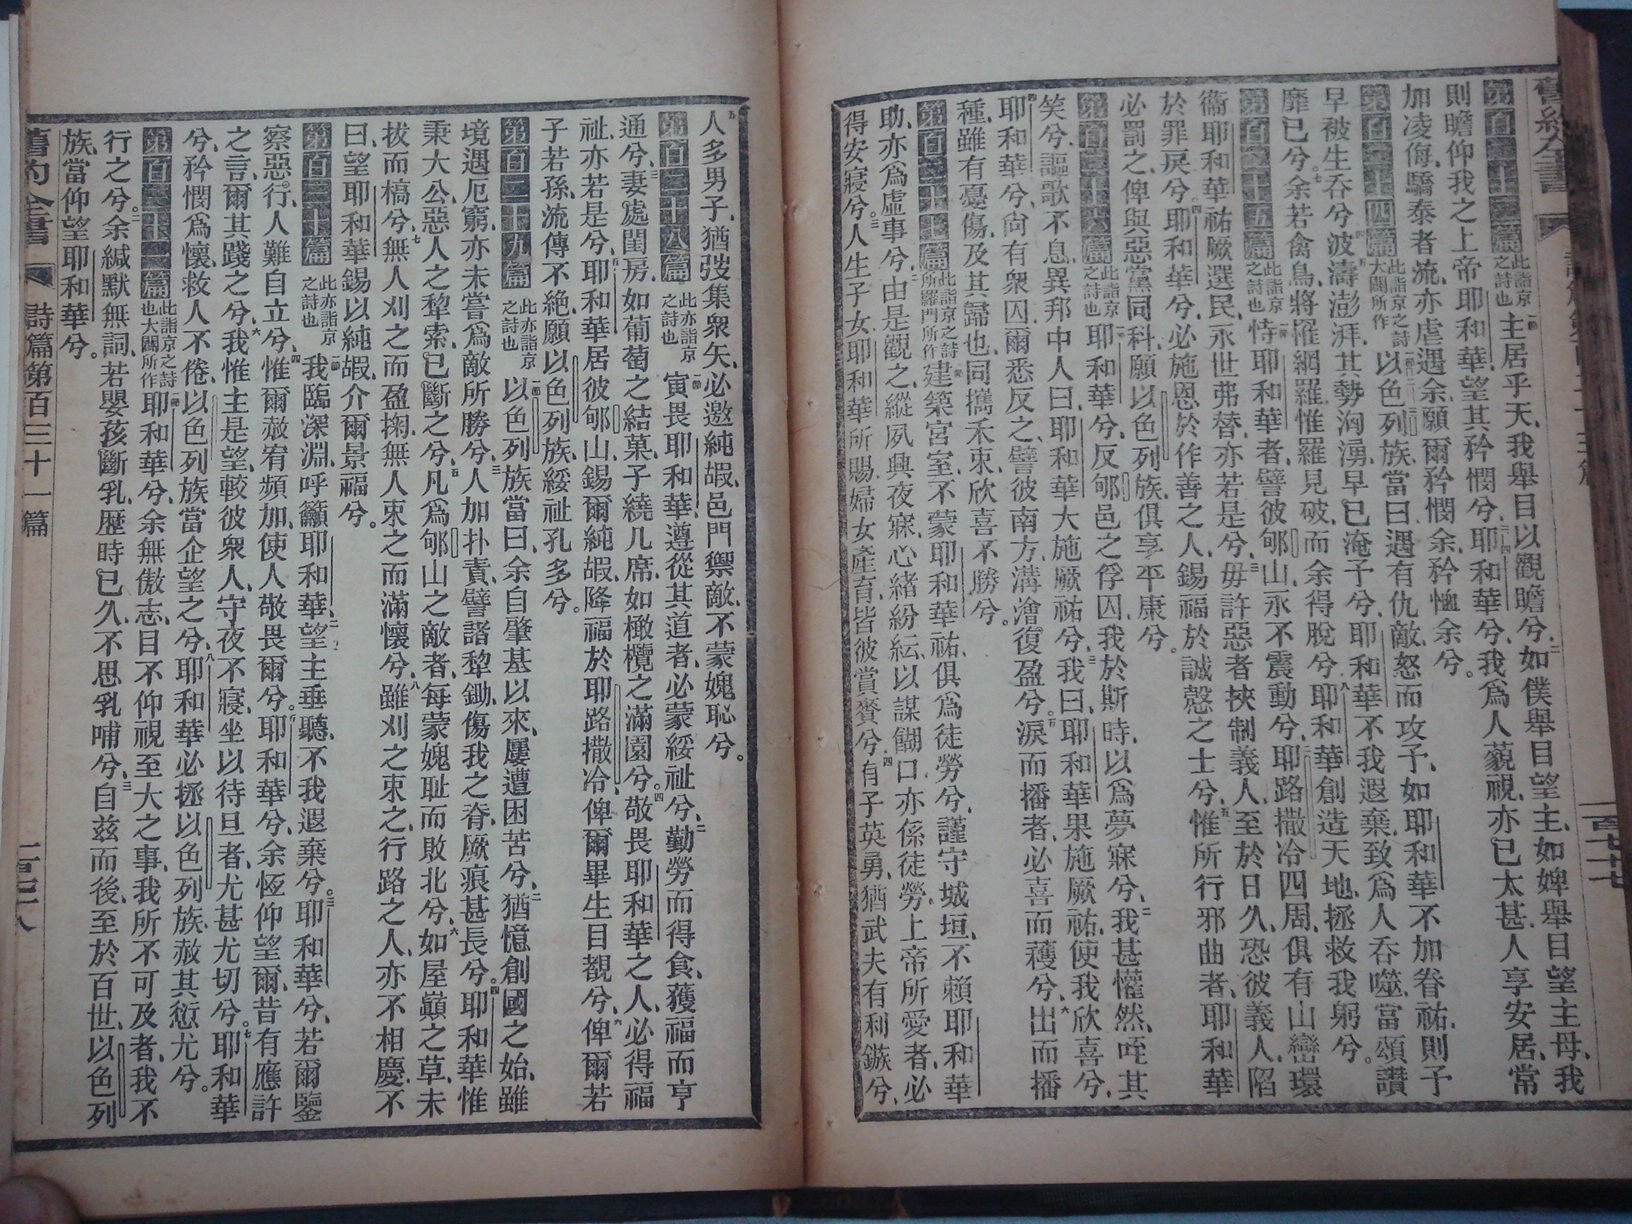 舊約全書
第百二十三篇 此詣京之詩也 主居乎天、我舉目以觀瞻兮、如僕舉目望主、如婢舉目望主母、我
則瞻仰我之上帝耶和華、望其矜憫兮、耶和華兮、我爲人藐視、亦已太甚、人享安居、常
加凌侮、驕泰者流、亦虐遇余、願爾矜憫余、矜恤余兮。
第百二十四篇 此詣京之詩大闢所作 以色列族、當曰、遇有仇敵、怒而攻予、如耶和華不加眷祐、則予
早被生吞兮、波濤澎湃、其勢洶湧、早已淹予兮、耶和華不我遐棄、致爲人吞噬、當頌讚
靡已兮、余若禽鳥、將罹網羅、惟羅見破、而余得脫兮、耶和華創造天地、拯救我躬兮。
第百二十五篇 此詣京之詩也 恃耶和華者、譬彼郇山、永不震動兮、耶路撒冷四周、俱有山巒環
衞、耶和華祐厥選民、永世弗替、亦若是兮、毋許惡者挾制義人、至於日久、恐彼義人、陷
於罪戾兮、耶和華兮、必施恩於作善之人、錫福於誠慤之士兮、惟所行邪曲者、耶和華
必罰之、俾與惡黨同科、願以色列族、俱享平康兮。
第百二十六篇 此詣京之詩也 耶和華兮、反郇邑之俘囚、我於斯時、以爲夢寐兮、我甚懽然、咥其
笑兮、謳歌不息、異邦中人曰、耶和華大施厥祐兮、我曰、耶和華果施厥祐、使我欣喜兮、
耶和華兮、尙有衆囚、爾悉反之、譬彼南方溝澮復盈兮、淚而播者、必喜而穫兮、出而播
種、雖有憂傷、及其歸也、同攜禾束、欣喜不勝兮。
第百二十七篇 此詣京之詩所羅門所作 建築宮室、不蒙耶和華祐、俱爲徒勞兮、謹守城垣、不賴耶和華
助、亦爲虛事兮、由是觀之、縱夙興夜寐、心緒紛紜、以謀餬口、亦係徒勞、上帝所愛者、必
得安寢兮、人生子女、耶和華所賜、婦女產育、皆彼賞賚兮、有子英勇、猶武夫有利鏃兮、
一百七十七
人多男子、猶弢集衆矢、必邀純嘏、邑門禦敵、不蒙媿恥兮。
第百二十八篇 此亦詣京之詩也 寅畏耶和華、遵從其道者、必蒙綏祉兮、勤勞而得食、獲福而亨
通兮、妻處閨房、如葡萄之結菓、子繞几席、如橄欖之滿園兮、敬畏耶和華之人、必得福
祉、亦若是兮、耶和華居彼郇山、錫爾純嘏、降福於耶路撒冷、俾爾畢生目覩兮、俾爾若
子若孫、流傳不絕、願以色列族綏祉孔多兮。
第百二十九篇 此亦詣京之詩也 以色列族當曰、余自肇基以來、屢遭困苦兮、猶憶創國之始、雖
境遇厄窮、亦未嘗爲敵所勝兮、人加扑責、譬諸犂鋤、傷我之脊、厥痕甚長兮、耶和華惟
秉大公、惡人之犂索、已斷之兮、凡爲郇山之敵者、每蒙媿耻而敗北兮、如屋巔之草、未
拔而槁兮、無人刈之而盈掬、無人束之而滿懷兮、雖刈之束之、行路之人、亦不相慶、不
曰、望耶和華錫以純嘏、介爾景福兮。
第百三十篇 此亦詣京之詩也 我臨深淵、呼籲耶和華、望主垂聽、不我遐棄兮、耶和華兮、若爾鑒
察惡行、人難自立兮、惟爾赦宥頻加、使人敬畏爾兮、耶和華兮、余恆仰望爾、昔有應許
之言、爾其踐之兮、我惟主是望、較彼衆人、守夜不寢、坐以待旦者、尤甚尤切兮、耶和華
兮、矜憫爲懷、救人不倦、以色列族當企望之兮、耶和華必拯以色列族、赦其愆尤兮。
第百三十一篇 此詣京之詩也大闢所作 耶和華兮、余無傲志、目不仰視、至大之事、我所不可及者、我不
行之兮、余緘默無詞、若嬰孩斷乳、歷時已久、不思乳哺兮、自茲而後、至於百世、以色列
族、當仰望耶和華兮。
舊約全書 詩篇第百三十一篇 一百七十八